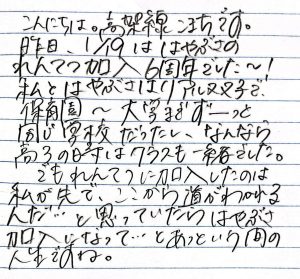 こんにちは。高架線こまちです。
昨日、1/19は はやぶさの
れんてつ加入6周年でした〜！
私とはやぶさはリアル双子で、
保育園〜大学までず〜っと
同じ学校だったし、なんなら
高3の時はクラスも一緒でした。
でもれんてつに加入したのは
私が先で、ここから道がわかれる
んだ…と思っていたらはやぶさ
加入になって…とあっという間の
人生ですね。